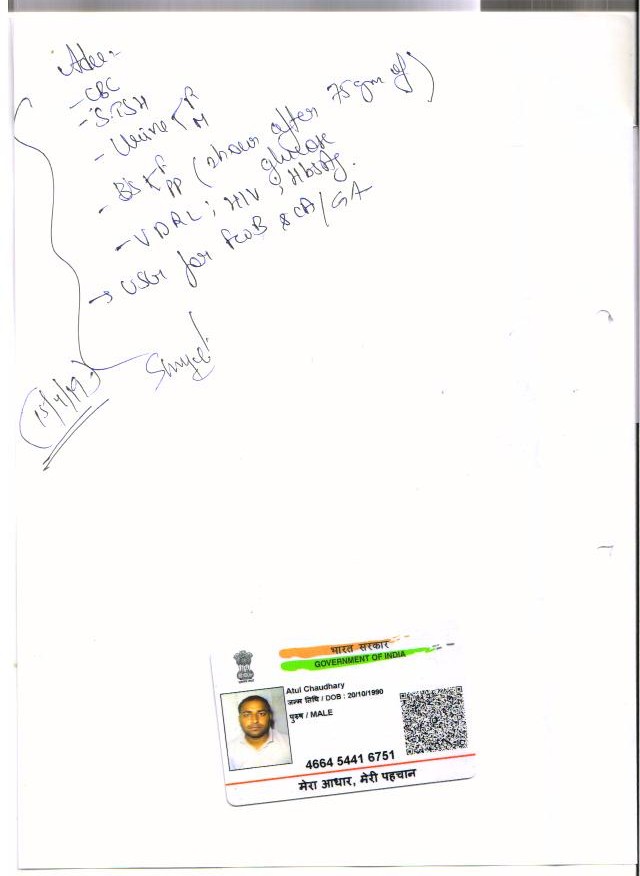 Adv:-
- CBC
- S.TSH
- Urine R
M
- BS F
PP (2hour after 75 gm of
glucose)
- VDRL ; HIV ; HbsAg.
→ USG for FWB & CA/GA
(15/4/19)
भारत सरकार
GOVERNMENT OF INDIA
Atul Chaudhary
जन्म तिथि / DOB : 20/10/1990
पुरुष / MALE
4664 5441 6751
मेरा आधार, मेरी पहचान